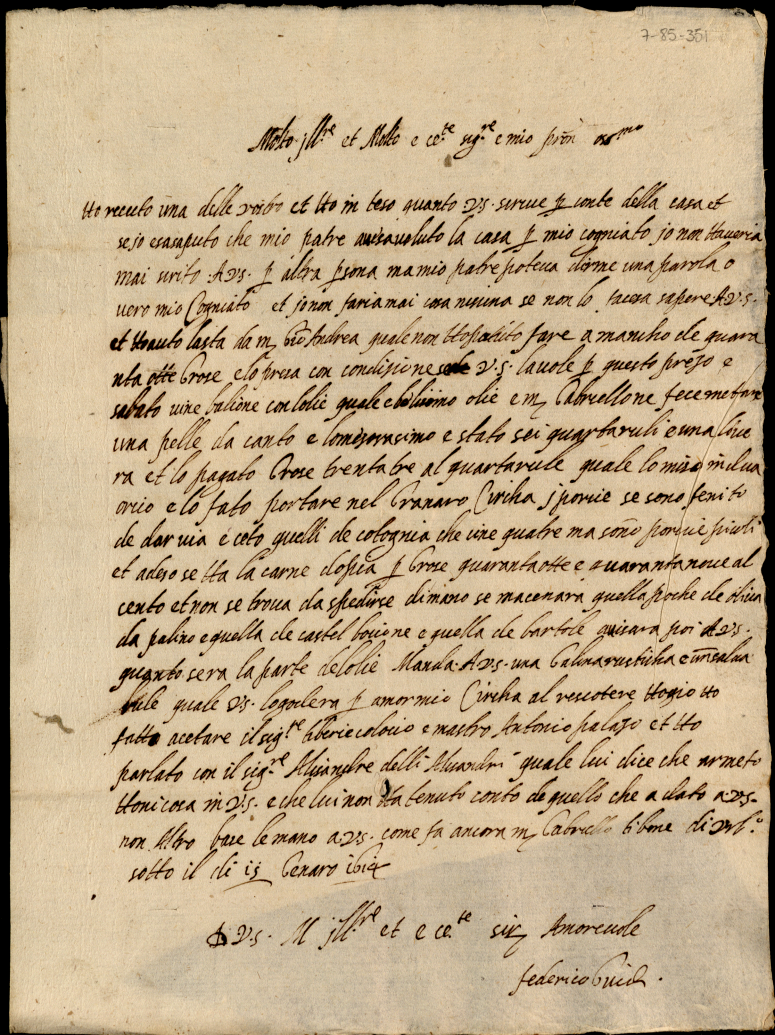 7-85-351
Molto Jll.re et Molto e cc.te sig.re e mio pron oss.mo
Ho receuto una delle vostro et Ho in teso quanto V.S. scrive p conte della casa et
se jo esasaputo che mio patre avisavoluto la casa p mio cogniato jo non Haveria
mai scrito A V.S. p altra psona ma mio patre poteva dirme una parola o
vero mio Cogniato et jo non faria mai cosa nisiuna se non lo facesa sapere A V.S.
et Ho auto lasta da m Gio Andrea quale non Ho potuto fare a mancho de quara
nta otte Grose e lo presa con condisione V.S. la vole p questo preso e
sabato vine balione con lolie quale e bilisimo olie e m Gabriellone fece metere
una pelle da canto e lo misorasimo e stato sei quartaruli e una live
ra et lo pagato Grose trentatre al quartarule quale lo miso in
orcio e lo fato portare nel Granaro Circha j porcie se sono fenito
de dar via e ceto quelli de cotognia che vine quatre ma sono porcie picoli
et adeso se Ha la carne p Grose quarantaotte e quarantanove al
cento et non se trova da spedirse di mano se macenara quella poche de oliva
da palino e quella de castel bocione e quella de bartole avisara poi A V.S.
quanto sera la parte delolie Manda A V.S. una Galina rustiha e un salva
quale V.S. lo godera p amor mio Circha al rescotere Hogio Ho
fatto acetare il sig.re liberie colocio e mastro Antonio palaso et Ho
parlato con il sig.re Alisandre delli Alisandri quale lui dice che armeto
Honi cosa in V.S. e che lui non Ha tenuto conto de quello che a dato a V.S.
non Altro base le mano a V.S. come fa ancora m Gabriello di
sotto il di 15 Genaro
D V.S. M Jll.re et e cc.te Amorevole
federico Guid